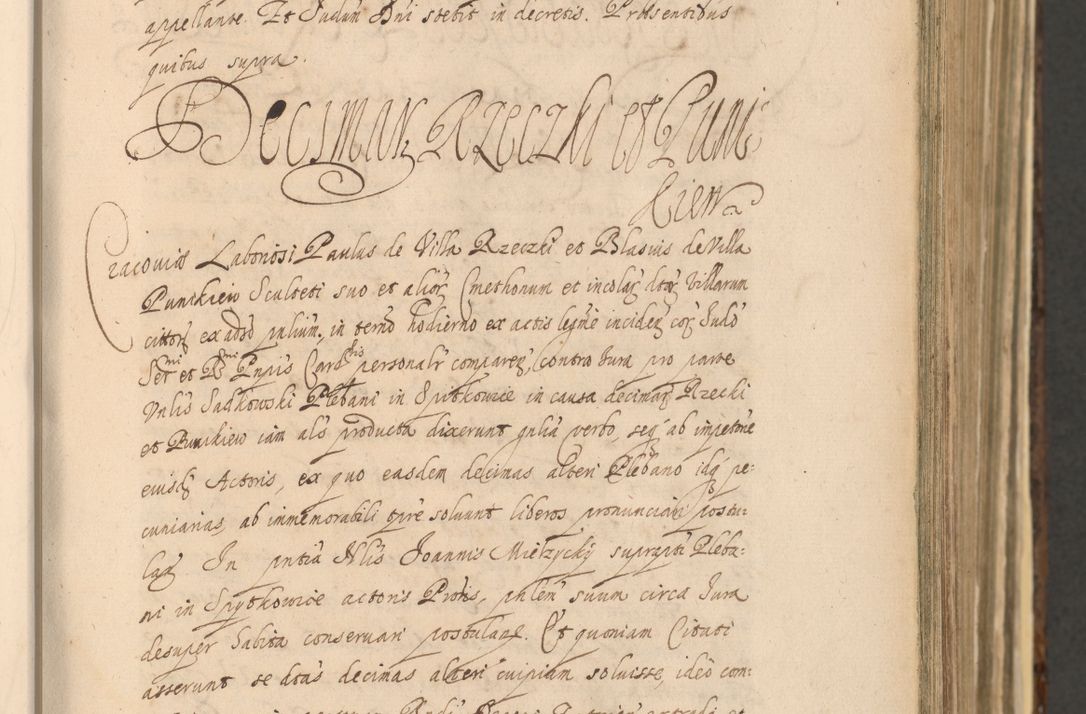 appellante. Et Judm Dni stetit in decretis. Præsentibus
quibus supra.
Decimar Rzeczki et Puni
kiew
Cracoviæ Laboriosi Paulus de Villa Rzeczki et Blasius de Villa
Punikiew Sculteti suo et alior Cmethonum et incolar dtor Villarum
cittor ex adso in termo hodierno ex actis legme inciden cor Judo
Sermi et Rmi Dnpis Cardlis personalr comparen, contra Jura pro parte
Vnlis Sadkowski Plebani in Spitkowice in causa decimar Rzecki
et Punikiew iam als producta dixerunt gnlia verbo, seq ab impetone
eiusd Actoris, ex quo easdem decimas alteri Plebano idq pe-
cuniarias, ab immemorabili tpre soluant liberos pronunciari postu-
lar In pntia Nlis Joannis Mietzycky suprapti Pleba-
ni in Spytkowice actoris Protis, phlem suum circa Jura
desuper habita conseruari postulan. Et quoniam Citati
asserunt se dtas decimas alteri cuipiam soluisse, ideo com-